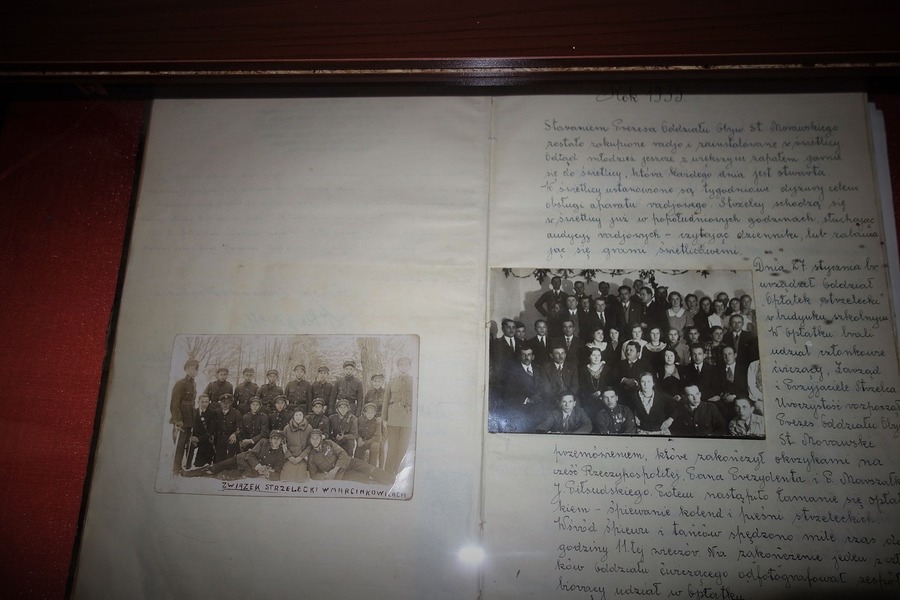 ZWIĄZEK STRZELECKI W MARCINKOWICACH
Rok 1935
Staraniem Prezesa Oddziału Obyw St. Morawskiego
zostało zakupione radjo i zainstalowane w świetlicy
Odtąd młodzież jeszcze z większym zapałem garnie
się do świetlicy, która każdego dnia jest otwarta.
W świetlicy ustanowione są tygodniowe dyżury celem
obsługi aparatu radjowego. Strzelcy schodzą się
w świetlicy już w popołudniowych godzinach, słuchając
audycyj radjowych - czytając dzienniki, lub zabawia
jąc się grami świetlicowemi.
Dnia 27 stycznia br
urządził Oddział
"Opłatek strzelecki"
w budynku szkolnym
W Opłatku brali
udział członkowie
ćwiczący, Zarząd
i Przyjaciele Strzelca
Uroczystość rozpoczął
Prezes Oddziału Oby
St. Morawski
przemówieniem, które zakończył okrzykami na
cześć Rzeczypospolitej, Pana Prezydenta i P. Marszałka
J. Piłsudskiego. Potem nastąpiło łamanie się opłat
kiem - śpiewanie kolend i pieśni strzeleckich.
Wśród śpiewu i tańców spędzono mile czas do
godziny 11.tej wieczór. Na zakończenie jeden z człon
ków oddziału ćwiczącego odfotografował zespół
biorący udział w Opłatku.